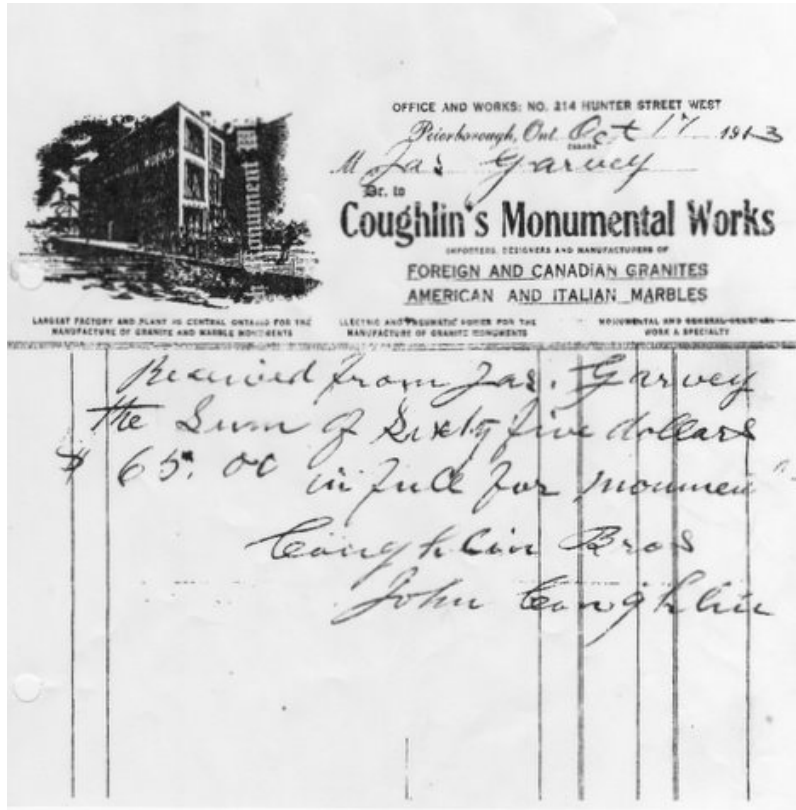 OFFICE AND WORKS: NO. 214 HUNTER STREET WEST
Peterborough, Ont. Oct 17 1913
CANADA
M Jas Garvey
Dr. to
Coughlin's Monumental Works
IMPORTERS, DESIGNERS AND MANUFACTURERS OF
FOREIGN AND CANADIAN GRANITES
AMERICAN AND ITALIAN MARBLES
LARGEST FACTORY AND PLANT IN CENTRAL ONTARIO FOR THE
MANUFACTURE OF GRANITE AND MARBLE MONUMENTS
ELECTRIC AND PNEUMATIC POWER FOR THE
MANUFACTURE OF GRANITE MONUMENTS
MONUMENTAL AND GENERAL CEMETERY
WORK A SPECIALTY
Received from Jas. Garvey
the Sum of Sixty five dollars
$ 65.00 in full for monument
Coughlin Bros
John Coughlin